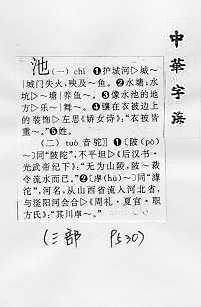 中華字海
池 (一) chí ❶护城河▷城~
|城门失火,殃及~鱼。❷水塘;水
坑▷~塘|养鱼~。❸像水池的地
方▷乐~|舞~。❹镶在衣被边上
的装饰▷左思《娇女诗》:“衣被皆
重~。”❺姓。
(二) tuó 音驼 ❶[陂(pō)
~]同“陂陀”,不平坦▷《后汉书·
光武帝纪下》:“无为山陵,陂~裁
令流水而已。”❷[虖(hū)~]同“滹
沱”,河名,从山西省流入河北省,
与滏阳河会合▷《周礼·夏官·职
方氏》:“其川虖~。”
(三部 P530)